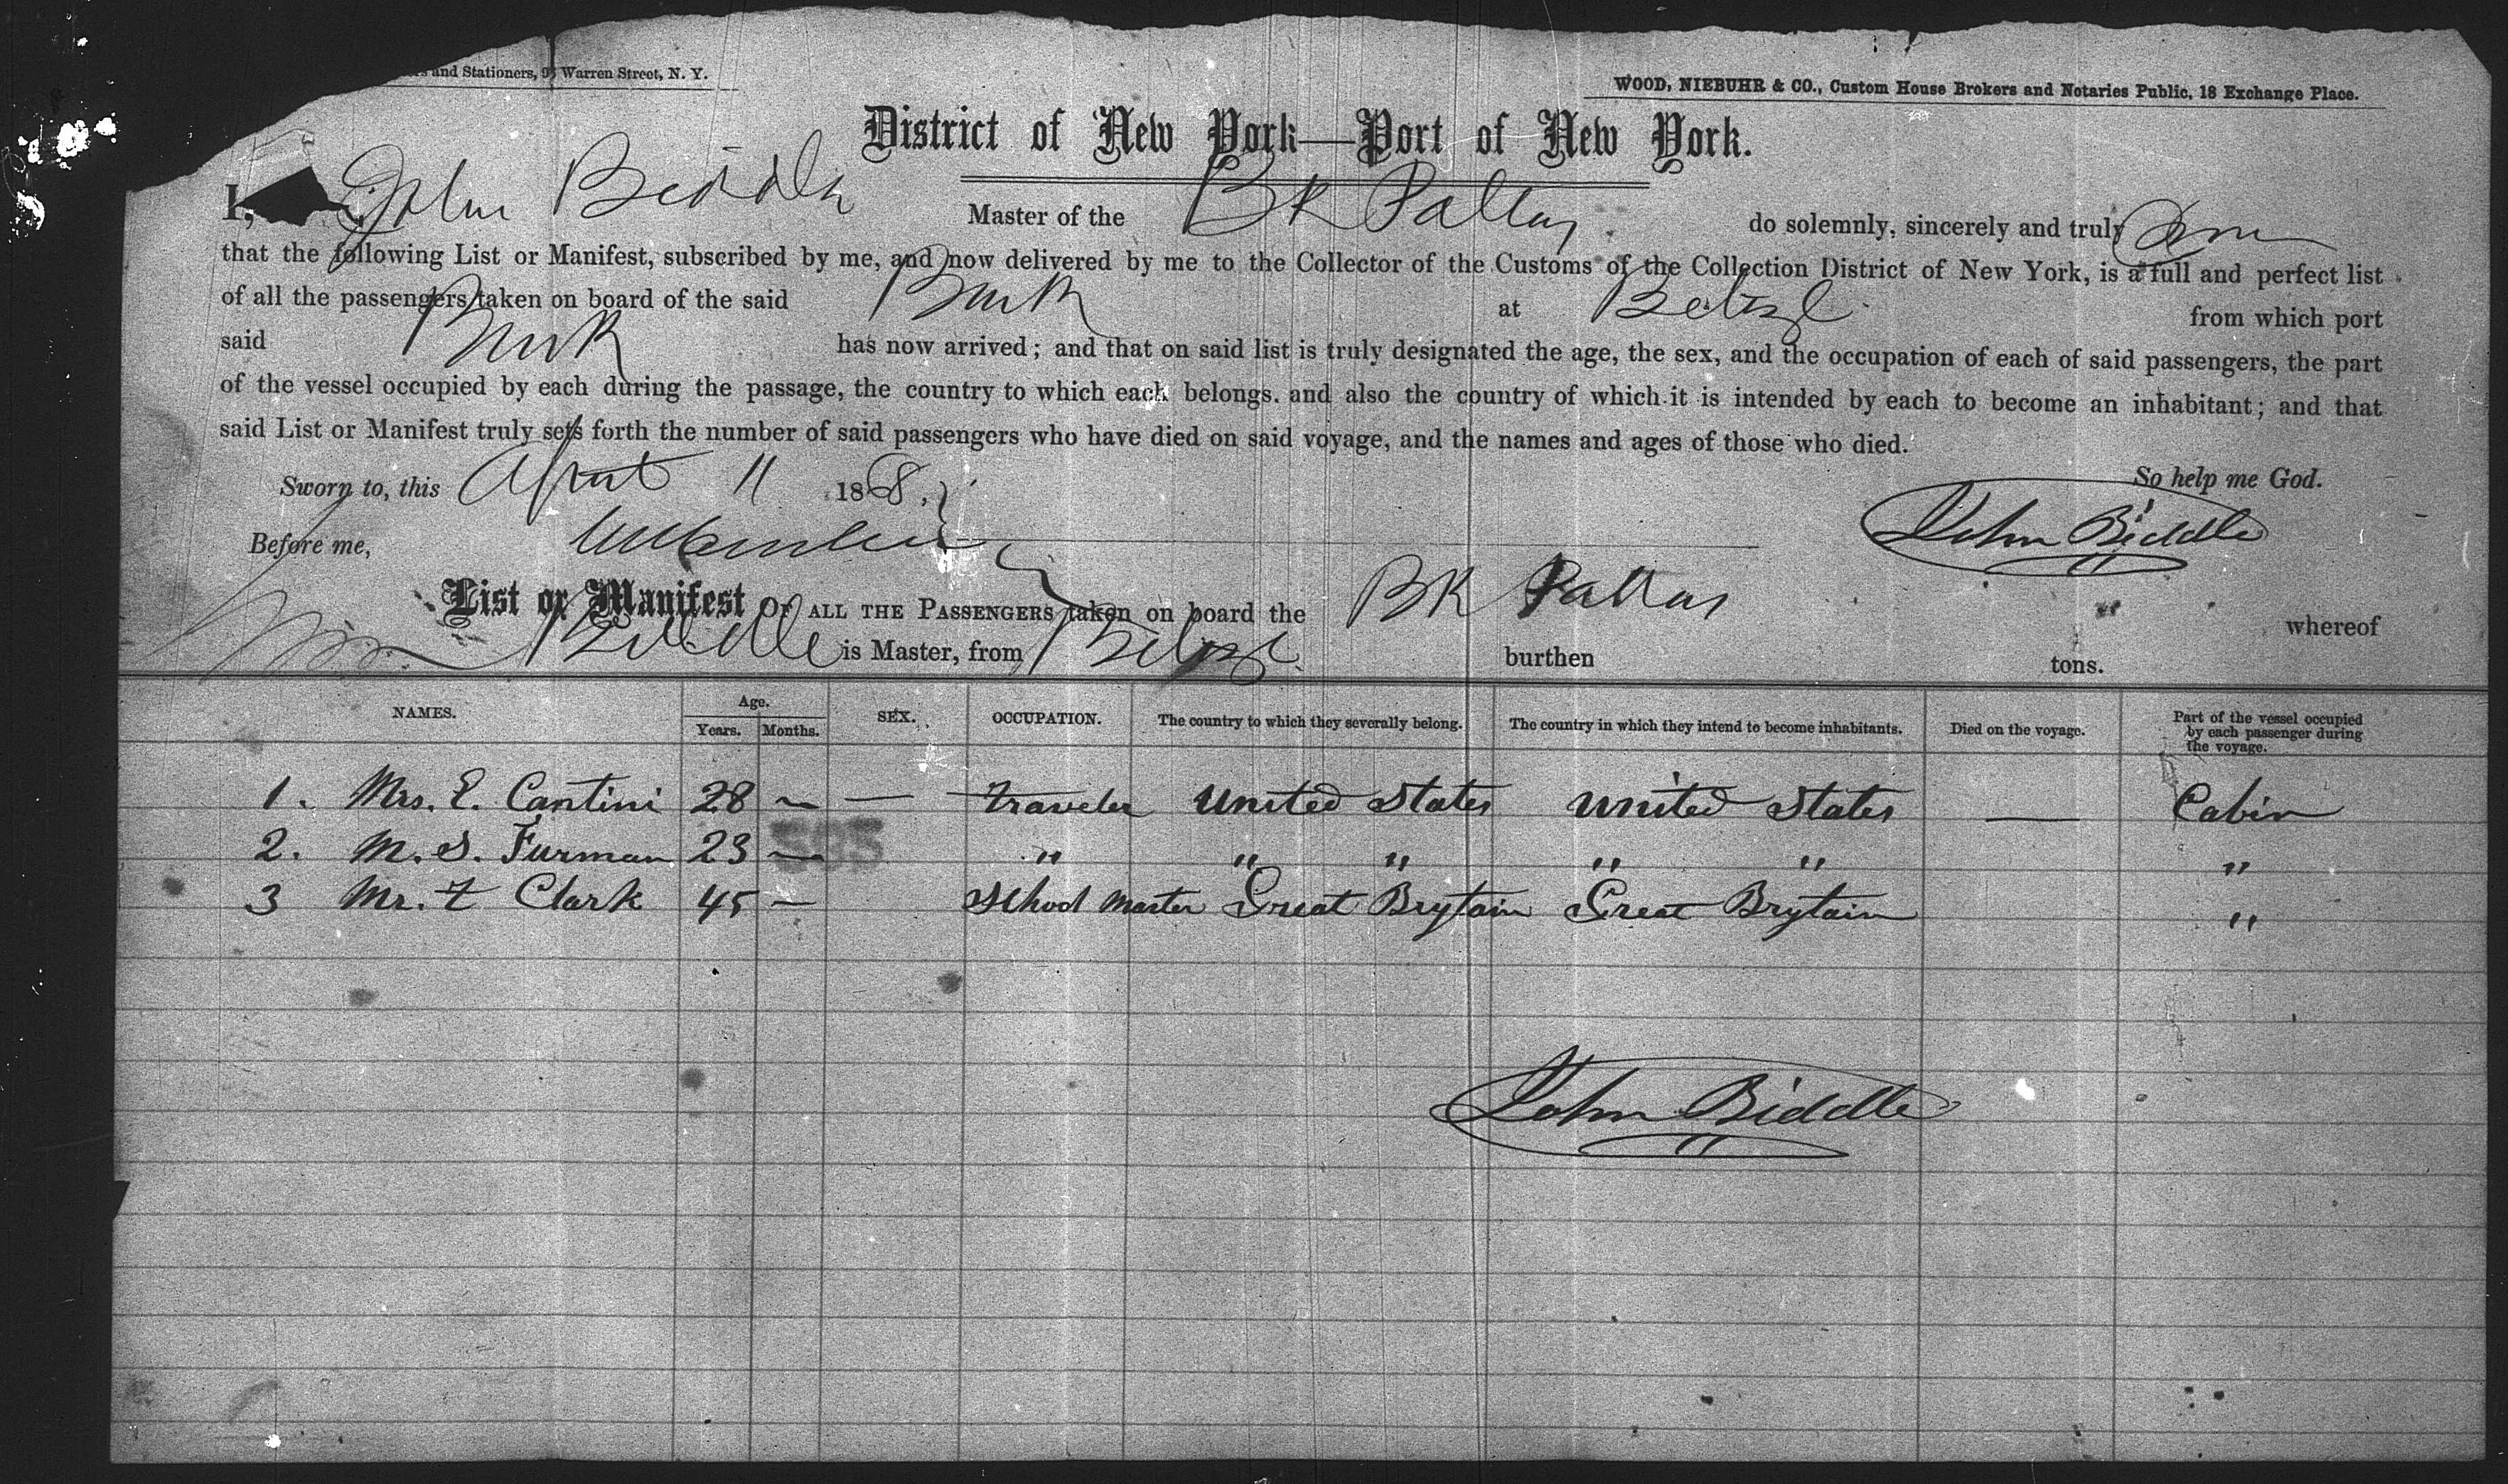 and Stationers, 9 Warren Street, N. Y.
WOOD, NIEBUHR & CO., Custom House Brokers and Notaries Public, 18 Exchange Place.
District of New York—Port of New York.
I, John Biddle Master of the Bk Pallas do solemnly, sincerely and truly
that the following List or Manifest, subscribed by me, and now delivered by me to the Collector of the Customs of the Collection District of New York, is a full and perfect list
of all the passengers taken on board of the said Bark at Belize from which port
said Bark has now arrived; and that on said list is truly designated the age, the sex, and the occupation of each of said passengers, the part
of the vessel occupied by each during the passage, the country to which each belongs. and also the country of which it is intended by each to become an inhabitant; and that
said List or Manifest truly sets forth the number of said passengers who have died on said voyage, and the names and ages of those who died.
Sworn to, this April 11 1868. So help me God.
Before me, John Biddle
List or Manifest OF ALL THE PASSENGERS taken on board the BK Pallas whereof
Biddle is Master, from Belize burthen tons.
NAMES. Age. Years. Months. SEX. OCCUPATION. The country to which they severally belong. The country in which they intend to become inhabitants. Died on the voyage. Part of the vessel occupied by each passenger during the voyage.
1. Mrs. E. Cantini 28 — — traveler United States United States — Cabin
2. M. S. Furman 23 — " " " " " "
3 Mr. F Clark 45 — School Master Great Brytain Great Brytain "
John Biddle